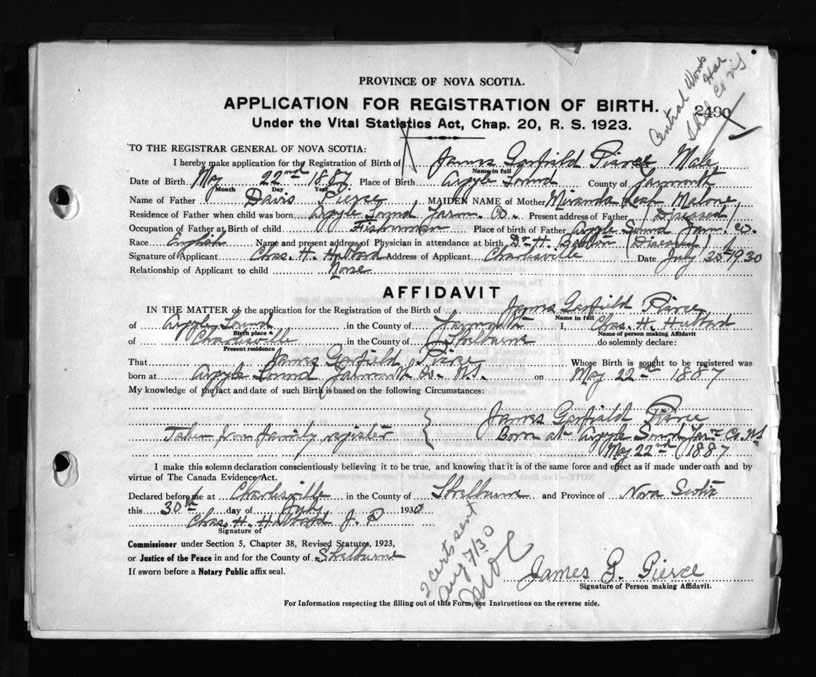 Central Woods
Har.
Shel Co NS
PROVINCE OF NOVA SCOTIA.
APPLICATION FOR REGISTRATION OF BIRTH. 2490
Under the Vital Statistics Act, Chap. 20, R. S. 1923.
TO THE REGISTRAR GENERAL OF NOVA SCOTIA:
I hereby make application for the Registration of Birth of James Garfield Pierce Male
Name in full
Date of Birth May 22nd 1887 Place of Birth Argyle Sound County of Yarmouth
Month Day Year
Name of Father Davis Pierce MAIDEN NAME of Mother Miranda Leah Malone
Residence of Father when child was born Argyle Sound Yarm. Co. Present address of Father (Diseased)
Occupation of Father at Birth of child Fisherman Place of birth of Father Argyle Sound Yarm. Co.
Race English Name and present address of Physician in attendance at birth Dr H. (Diseased)
Signature of Applicant Chas. H. Hubbard Address of Applicant Charlisville Date July 25th 1930
Relationship of Applicant to child None
AFFIDAVIT
IN THE MATTER of the application for the Registration of Birth of James Garfield Pierce
Name in full
of Argyle Sound in the County of Yarmouth I, Chas. H. Hubbard
Birth place Name of person making Affidavit
of Charlisville in the County of Shelburne do solemnly declare:
Present residence
That James Garfield Pierce Whose Birth is sought to be registered was
born at Argyle Sound Yarmouth Co. N.S. on May 22nd 1887
My knowledge of the fact and date of such Birth is based on the following Circumstances:
James Garfield Pierce
Taken from family register { Born at Argyle Sound Yar. Co. NS
May 22nd 1887
I make this solemn declaration conscientiously believing it to be true, and knowing that it is of the same force and effect as if made under oath and by
virtue of The Canada Evidence Act.
Declared before me at Charlisville in the County of Shelburne and Province of Nova Scotia
this 30th day of July 1930
Chas. H. Hubbard J. P
Signature of
Commissioner under Section 5, Chapter 38, Revised Statutes, 1923,
or Justice of the Peace in and for the County of Shelburne
If sworn before a Notary Public affix seal.
2 certs sent
Aug 7/30
James G. Pierce
Signature of Person making Affidavit.
For Information respecting the filling out of this Form, see Instructions on the reverse side.